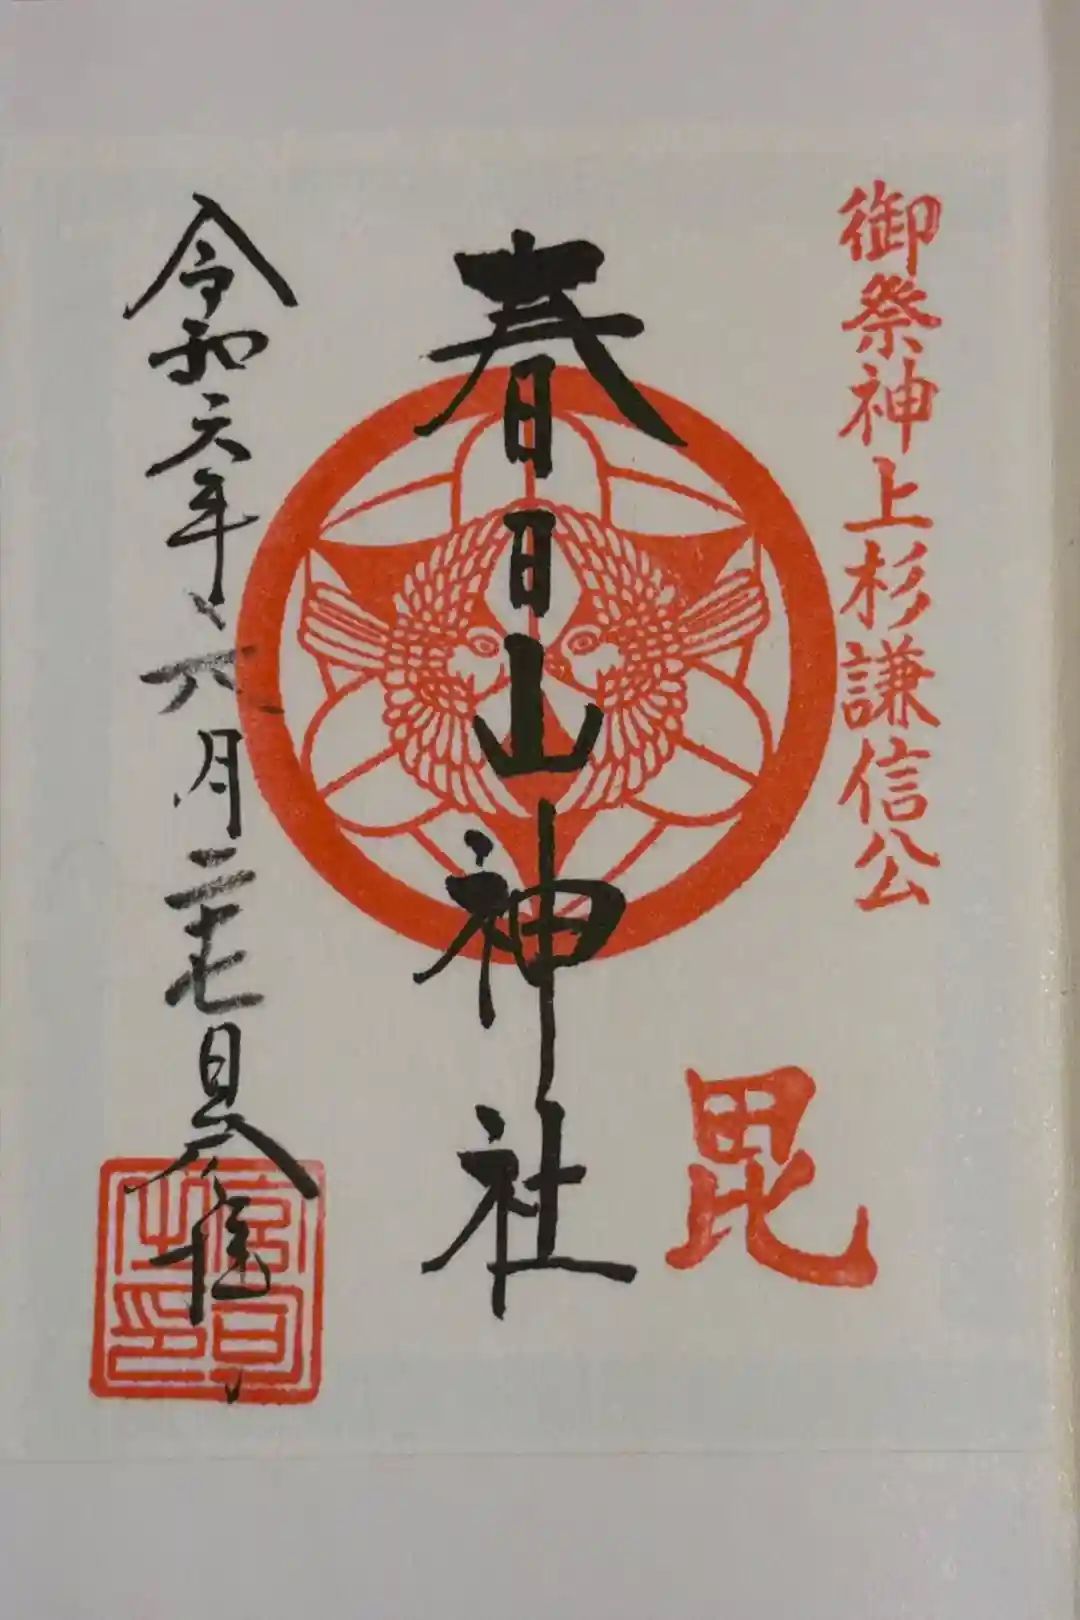 御祭神上杉謙信公
毘
春日山神社
令和六年六月二十七日参拝
宮司
之印